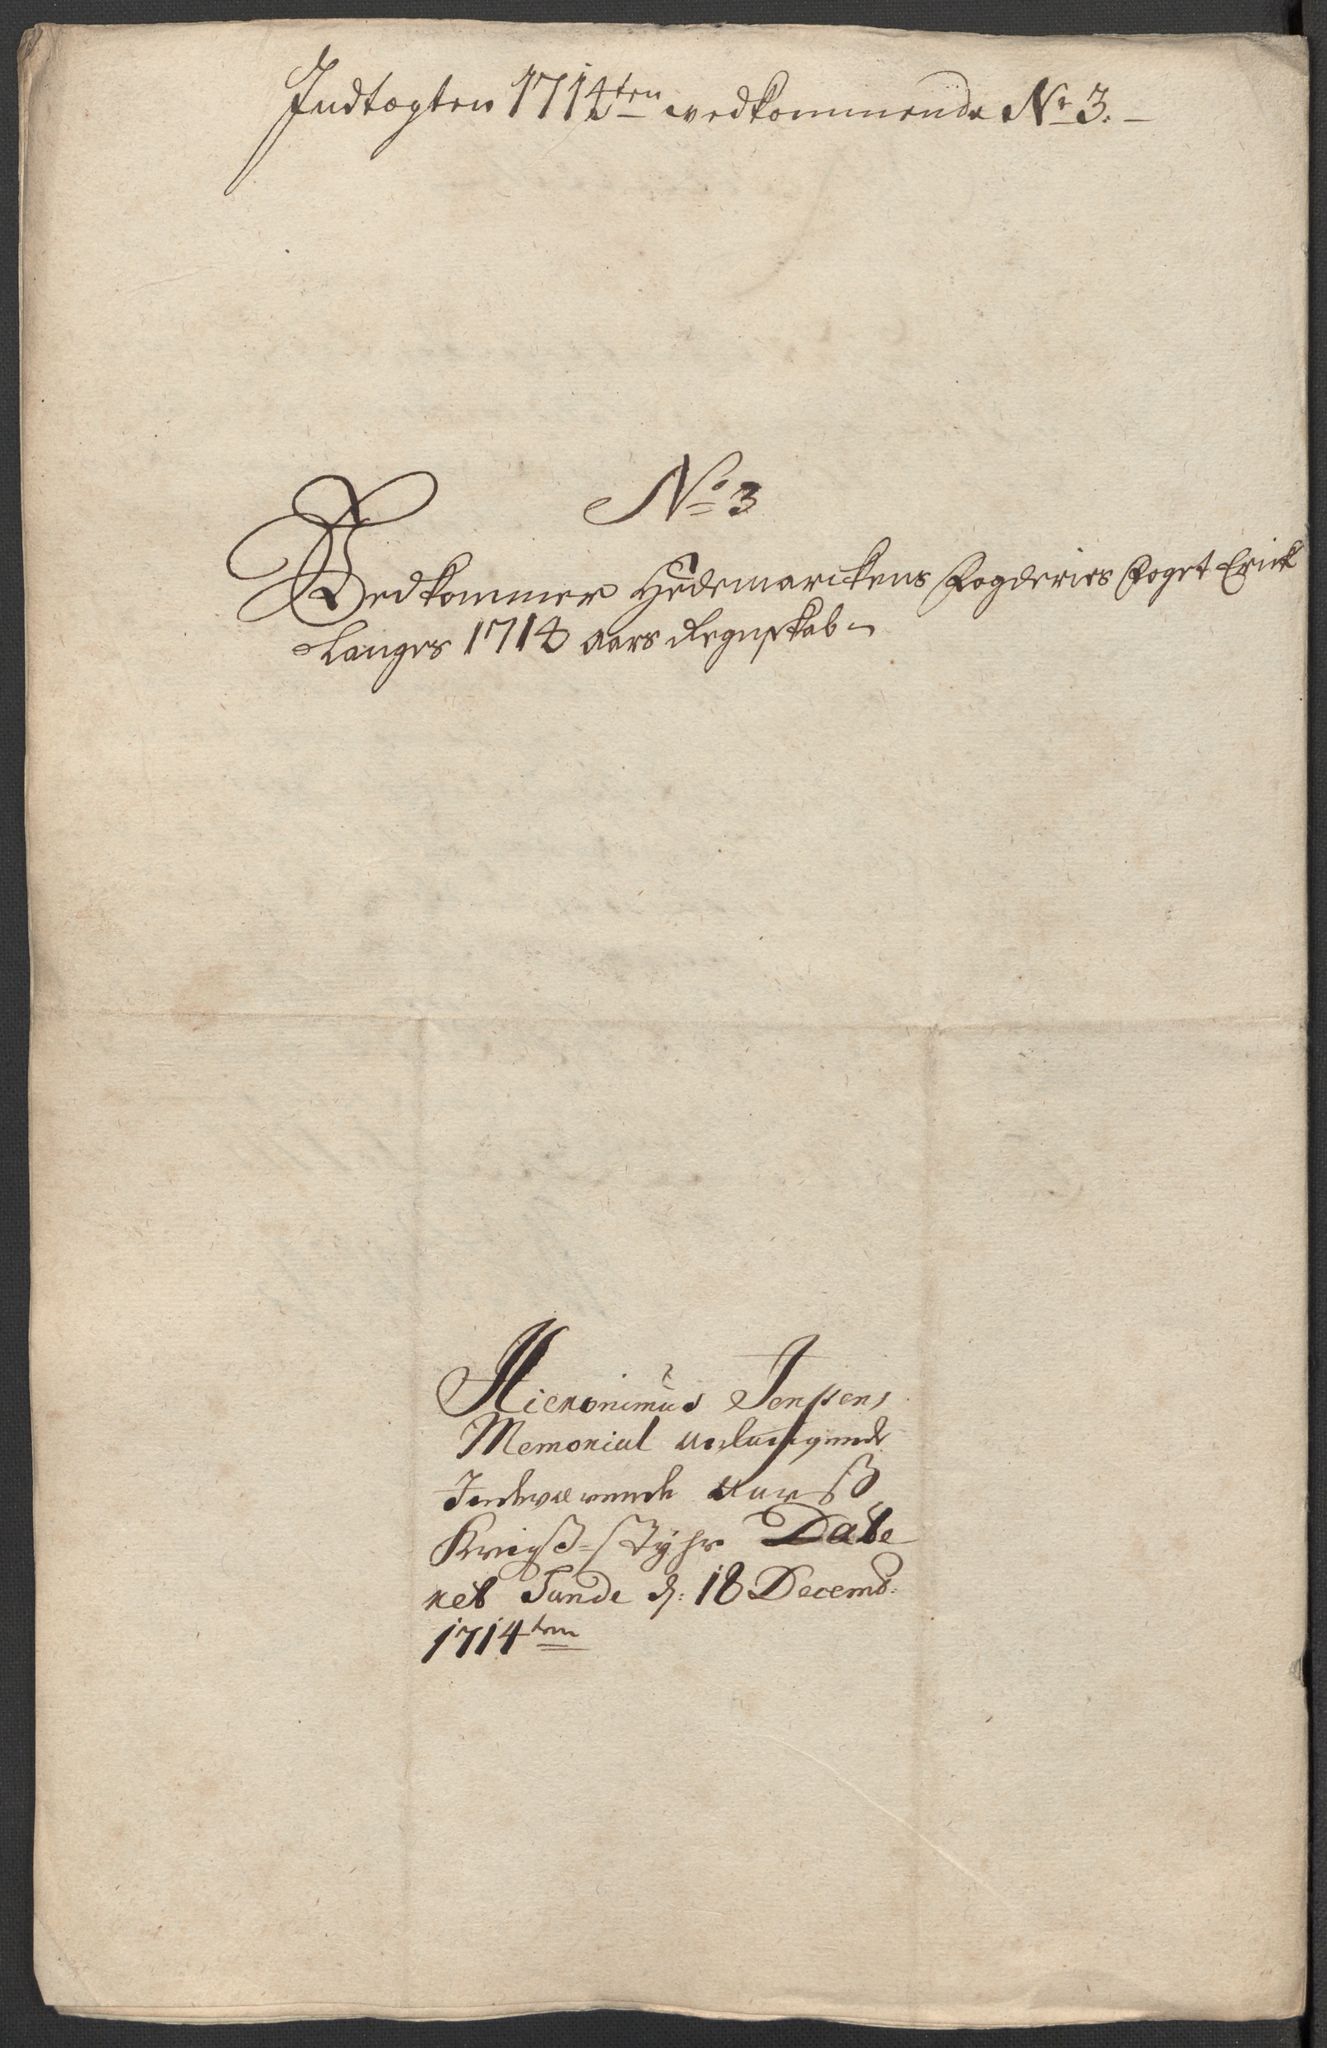 Indtægten 1714ten vedkommende No 3.
No 3
Vedkommer Hedemarckens Fogderies Foget Erick
Langes 1714 Aars Regnskab
Hieronimus Jenssens
Memorial anlangende
Indeværende Aarß
Krigß-Styhr Date
ret Sande d: 18 Decemb:
1714ten